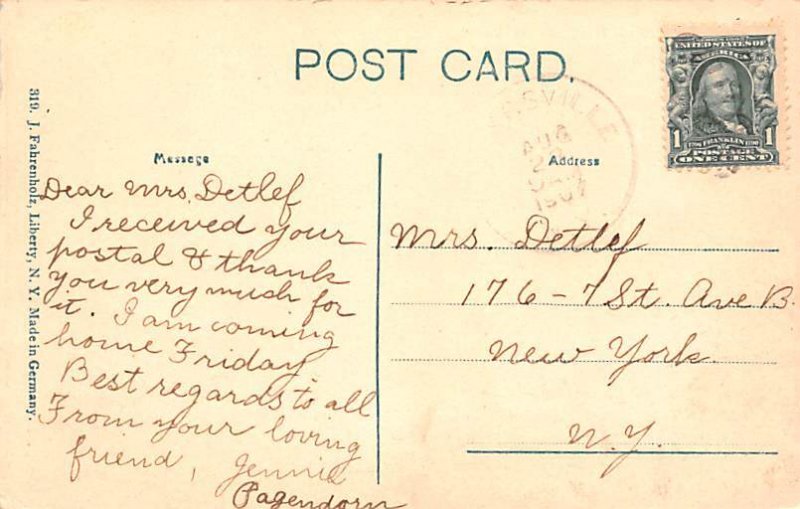 POST CARD.
UNITED STATES OF
AMERICA
1 FRANKLIN 1
POSTAGE
ONE CENT
AUG
1907
Message
Address
319. J. Fahrenholz, Liberty, N. Y. Made in Germany.
Dear Mrs. Detlef
I received your
postal & thank
you very much for
it. I am coming
home Friday
Best regards to all
From your loving
friend, Jennie
Pagendorn
Mrs. Detlef
176-7 St. Ave B.
New York
N.Y.